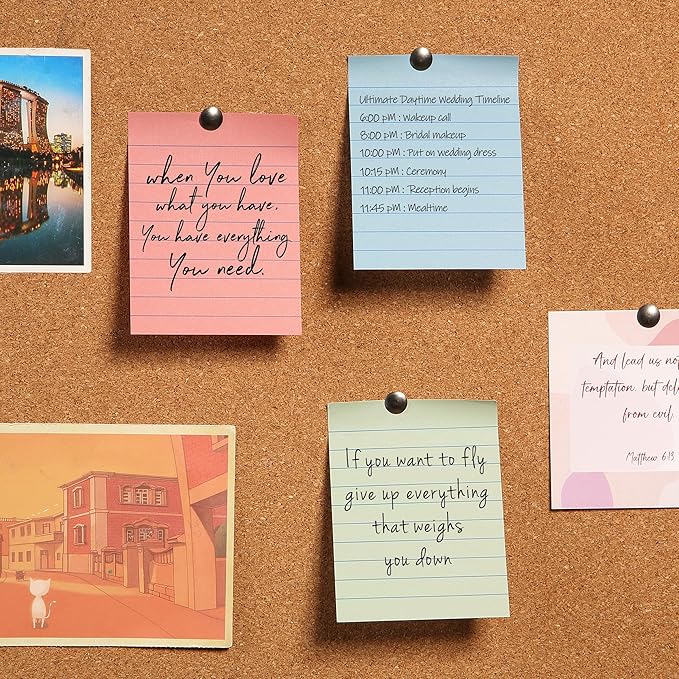 when You love
what you have.
You have everything
You need.
Ultimate Daytime Wedding Timeline
6:00 pm : Wakeup call
8:00 pm : Bridal makeup
10:00 pm : Put on wedding dress
10:15 pm : Ceremony
11:00 pm : Reception begins
11:45 pm : Mealtime
And lead us not
temptation, but
from evil.
Matthew 6:13
If you want to fly
give up everything
that weighs
you down